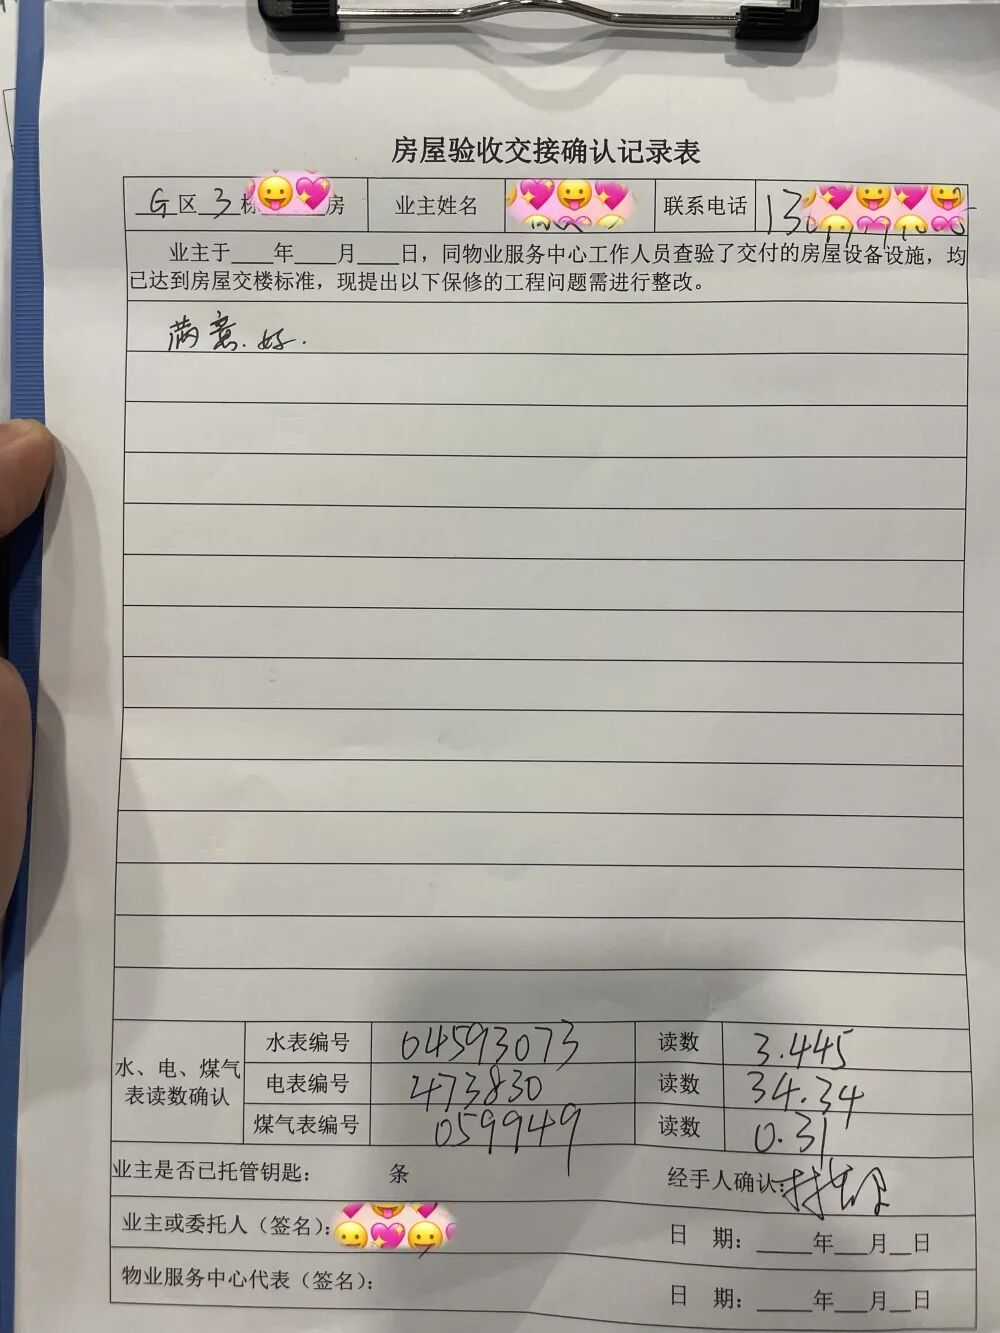 房屋验收交接确认记录表
G区 3栋 房 业主姓名 联系电话 13
业主于___年___月___日，同物业服务中心工作人员查验了交付的房屋设备设施，均
已达到房屋交楼标准，现提出以下保修的工程问题需进行整改。
满意.好.
水、电、煤气
表读数确认
水表编号 04593073 读数 3.445
电表编号 473830 读数 34.34
煤气表编号 059949 读数 0.31
业主是否已托管钥匙： 条 经手人确认：
业主或委托人（签名）： 日 期：____年___月__日
物业服务中心代表（签名）： 日 期：____年___月__日